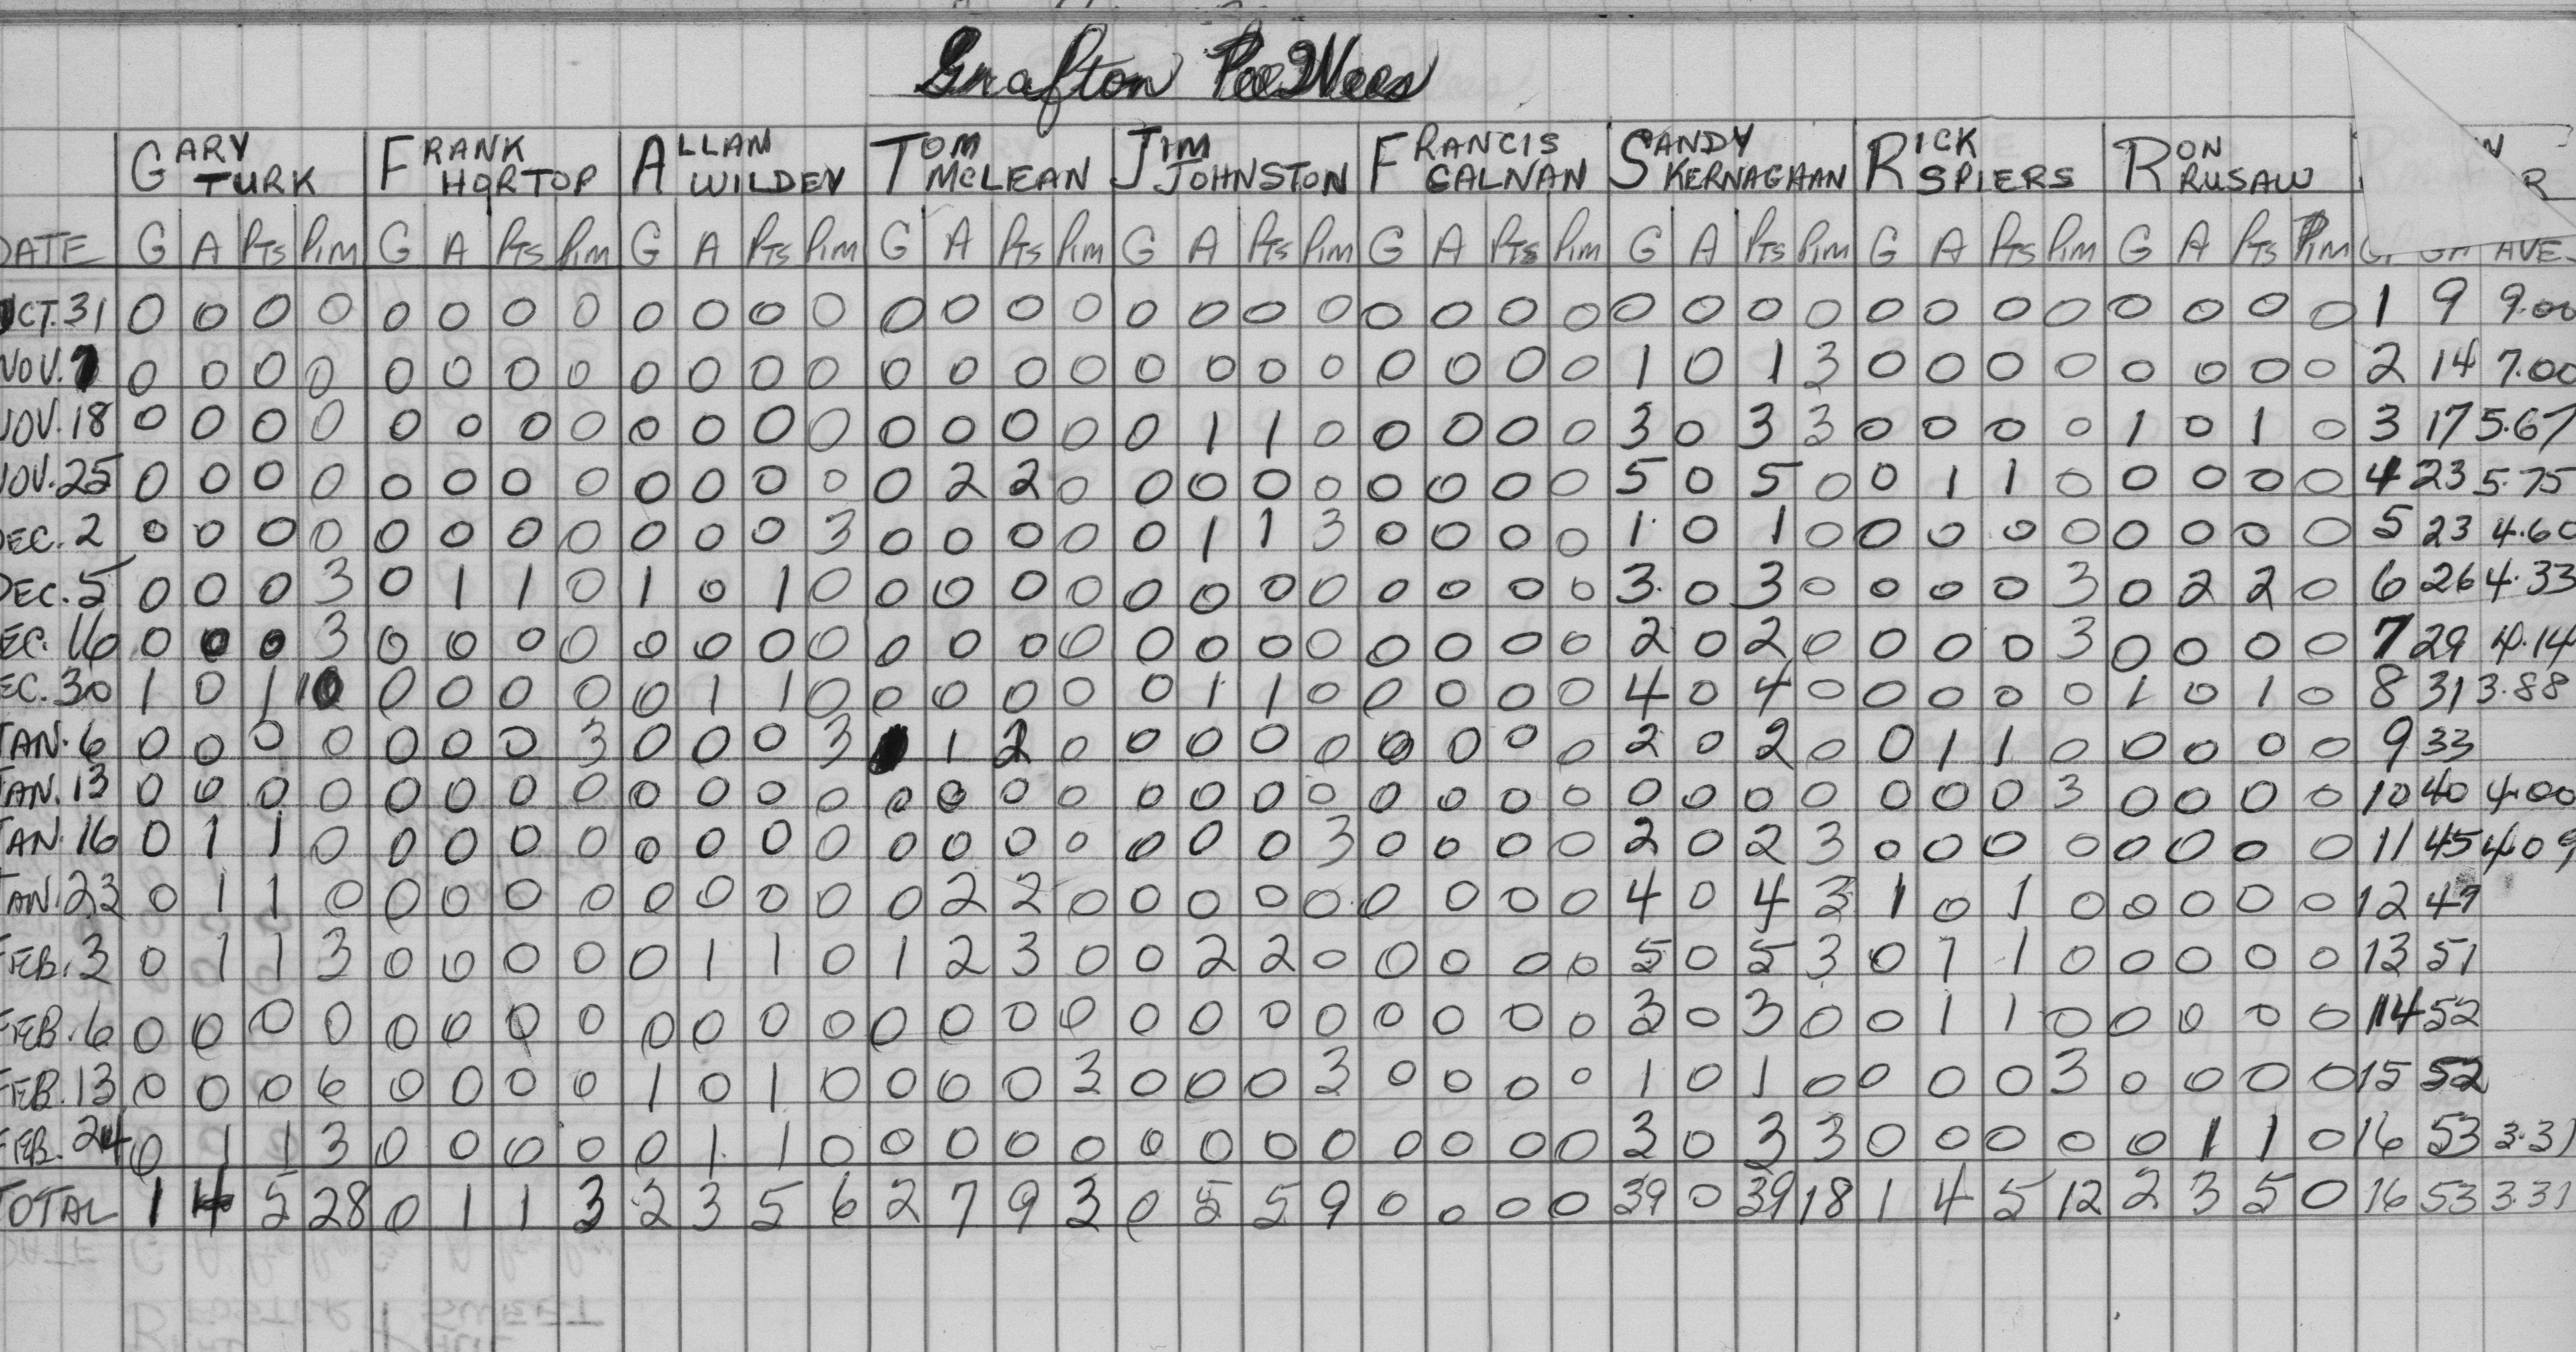 Grafton PeeWees
GARY TURK FRANK HORTOP ALLAN WILDEY TOM MCLEAN JIM JOHNSTON FRANCIS CALNAN SANDY KERNAGHAN RICK SPIERS RON RUSAW N R
DATE G A PTS PIM G A PTS PIM G A PTS PIM G A PTS PIM G A PTS PIM G A PTS PIM G A PTS PIM G A PTS PIM G A PTS PIM G. GA AVE.
OCT. 31 0 0 0 0 0 0 0 0 0 0 0 0 0 0 0 0 0 0 0 0 0 0 0 0 0 0 0 0 0 0 0 0 0 0 0 0 1 9 9.00
NOV. 7 0 0 0 0 0 0 0 0 0 0 0 0 0 0 0 0 0 0 0 0 0 0 0 0 1 0 1 3 0 0 0 0 0 0 0 0 2 14 7.00
NOV. 18 0 0 0 0 0 0 0 0 0 0 0 0 0 0 0 0 0 1 1 0 0 0 0 0 3 0 3 3 0 0 0 0 1 0 1 0 3 17 5.67
NOV. 25 0 0 0 0 0 0 0 0 0 0 0 0 0 2 2 0 0 0 0 0 0 0 0 0 5 0 5 0 0 1 1 0 0 0 0 0 4 23 5.75
DEC. 2 0 0 0 0 0 0 0 0 0 0 0 3 0 0 0 0 0 1 1 3 0 0 0 0 1 0 1 0 0 0 0 0 0 0 0 0 5 23 4.60
DEC. 5 0 0 0 3 0 1 1 0 1 0 1 0 0 0 0 0 0 0 0 0 0 0 0 0 3 0 3 0 0 0 0 3 0 2 2 0 6 26 4.33
EC. 16 0 0 0 3 0 0 0 0 0 0 0 0 0 0 0 0 0 0 0 0 0 0 0 0 2 0 2 0 0 0 0 3 0 0 0 0 7 29 4.14
EC. 30 1 0 1 10 0 0 0 0 0 1 1 0 0 0 0 0 0 1 1 0 0 0 0 0 4 0 4 0 0 0 0 0 1 0 1 0 8 31 3.88
JAN. 6 0 0 0 0 0 0 0 3 0 0 0 3 1 1 2 0 0 0 0 0 0 0 0 0 2 0 2 0 0 1 1 0 0 0 0 0 9 33
JAN. 13 0 0 0 0 0 0 0 0 0 0 0 0 0 0 0 0 0 0 0 0 0 0 0 0 0 0 0 0 0 0 0 3 0 0 0 0 10 40 4.00
JAN. 16 0 1 1 0 0 0 0 0 0 0 0 0 0 0 0 0 0 0 0 3 0 0 0 0 2 0 2 3 0 0 0 0 0 0 0 0 11 45 4.09
JAN. 23 0 1 1 0 0 0 0 0 0 0 0 0 0 2 2 0 0 0 0 0 0 0 0 0 4 0 4 3 1 0 1 0 0 0 0 0 12 49
FEB. 3 0 1 1 3 0 0 0 0 0 1 1 0 1 2 3 0 0 2 2 0 0 0 0 0 5 0 5 3 0 1 1 0 0 0 0 0 13 51
FEB. 6 0 0 0 0 0 0 0 0 0 0 0 0 0 0 0 0 0 0 0 0 0 0 0 0 3 0 3 0 0 1 1 0 0 0 0 0 14 52
FEB. 13 0 0 0 6 0 0 0 0 1 0 1 0 0 0 0 3 0 0 0 3 0 0 0 0 1 0 1 0 0 0 0 3 0 0 0 0 15 52
FEB. 24 0 1 1 3 0 0 0 0 0 1 1 0 0 0 0 0 0 0 0 0 0 0 0 0 3 0 3 3 0 0 0 0 0 1 1 0 16 53 3.31
TOTAL 1 4 5 28 0 1 1 3 2 3 5 6 2 7 9 3 0 5 5 9 0 0 0 0 39 0 39 18 1 4 5 12 2 3 5 0 16 53 3.31